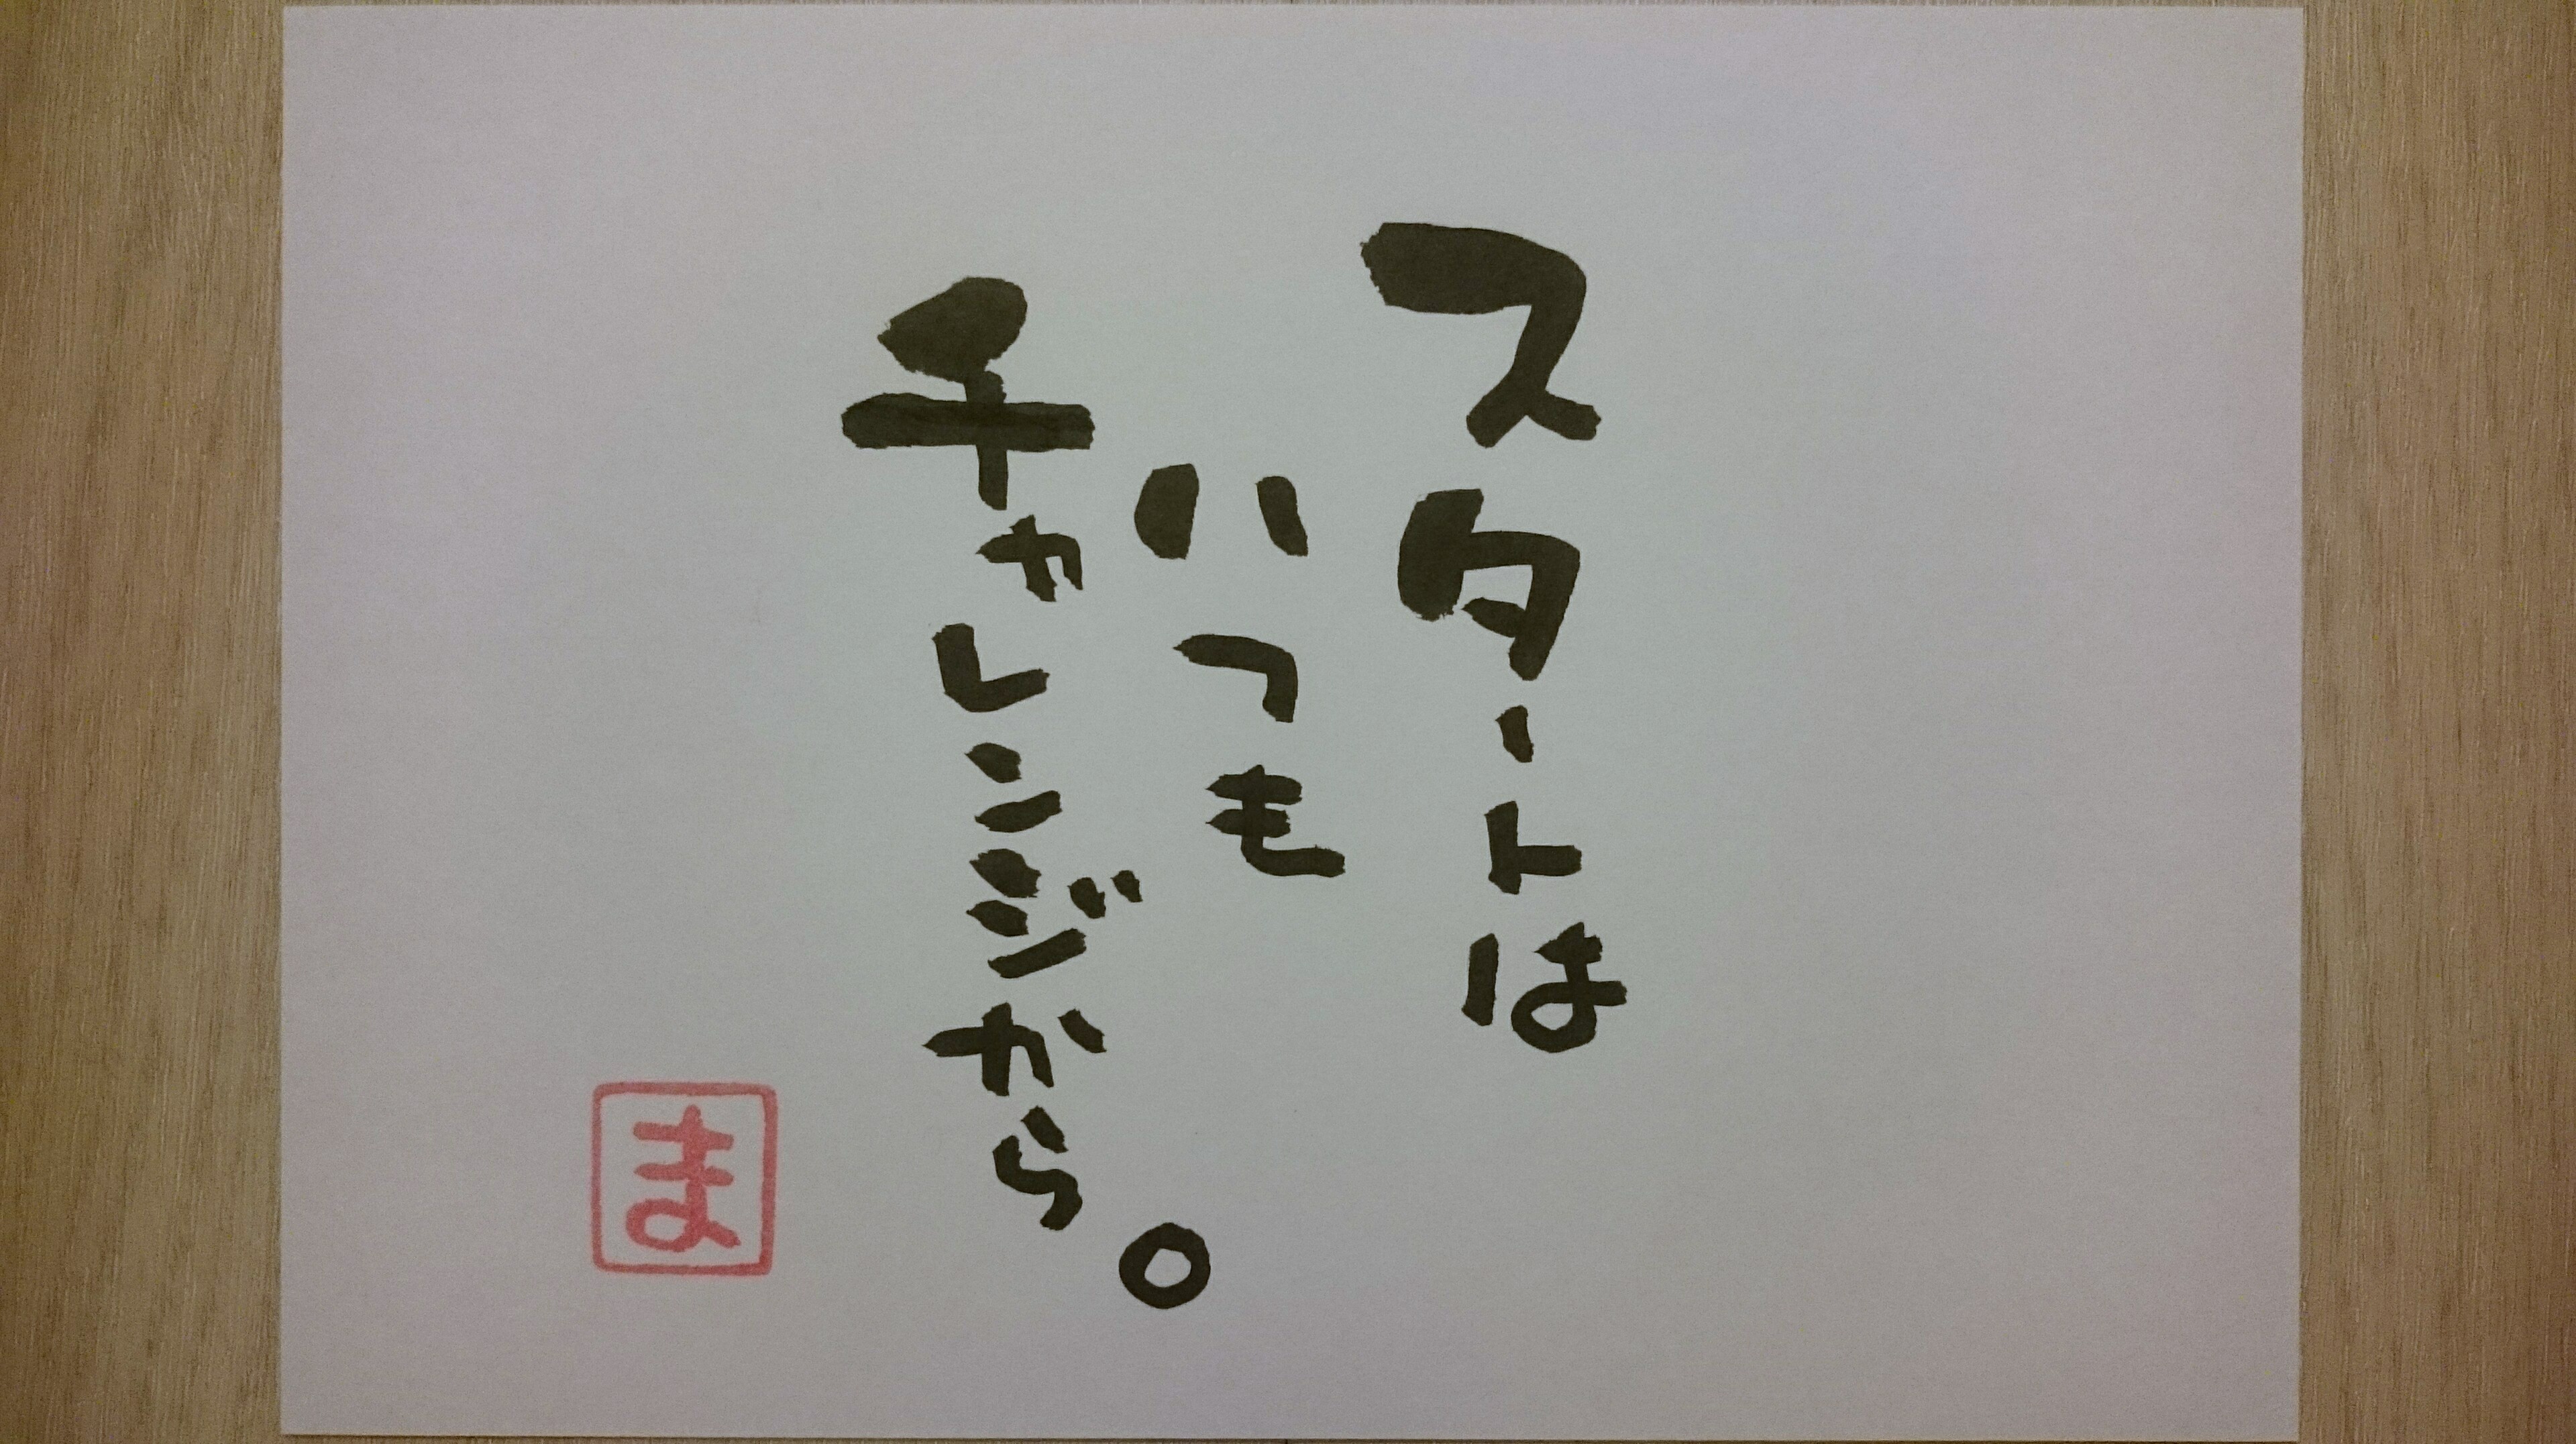 スタートは
いつも
チャレンジから。
ま